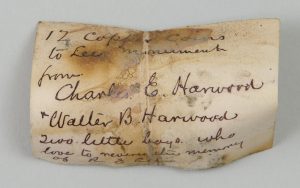 17 copper coins
to Lee monument
from
Charles E. Harwood
& Walter B. Harwood
Two little boys who
love to revere the memory
of R E